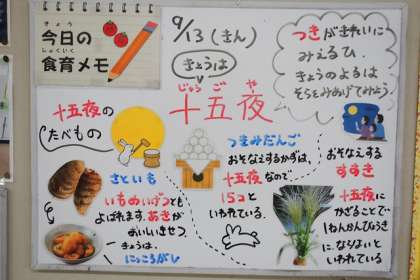 きょう
今日の
しょくいく
食育メモ
9/13(きん)
きょうは
じゅうごや
十五夜
つきがきれいに
みえるひ。
きょうのよるは
そらをみあげてみよう
十五夜の
たべもの
さといも
いもめいげつとも
よばれます。あきが
おいしいきせつ。
きょうは、
にっころがし
つきみだんご
おそなえするかずは、
十五夜なので
15コと
いわれている。
おそなえする
すすき
十五夜に
かざることで
1ねんかんびょうき
にならないと
いわれている